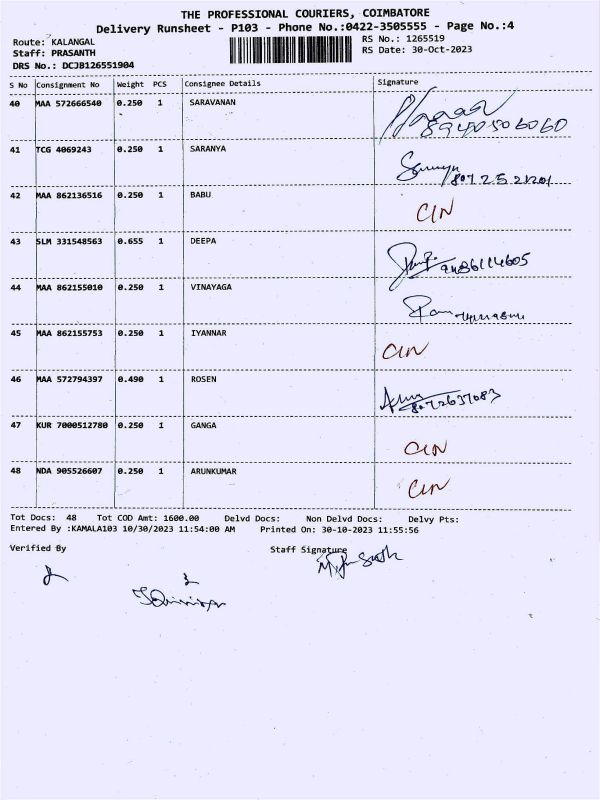 THE PROFESSIONAL COURIERS, COIMBATORE
Delivery Runsheet - P103 - Phone No.:0422-3505555 - Page No.:4
Route: KALANGAL
RS No.: 1265519
Staff: PRASANTH
RS Date: 30-Oct-2023
DRS No.: DCJB126551904
S No Consignment No Weight PCS Consignee Details Signature
40 MAA 572666540 0.250 1 SARAVANAN
8940506060
41 TCG 4069243 0.250 1 SARANYA
42 MAA 862136516 0.250 1 BABU CIN
43 SLM 331548563 0.655 1 DEEPA 9486114605
44 MAA 862155010 0.250 1 VINAYAGA
45 MAA 862155753 0.250 1 IYANNAR CIN
46 MAA 572794397 0.490 1 ROSEN
8072637083
47 KUR 7000512780 0.250 1 GANGA CIN
48 NDA 905526607 0.250 1 ARUNKUMAR CIN
Tot Docs: 48 Tot COD Amt: 1600.00 Delvd Docs: Non Delvd Docs: Delvy Pts:
Entered By :KAMALA103 10/30/2023 11:54:00 AM Printed On: 30-10-2023 11:55:56
Verified By Staff Signature